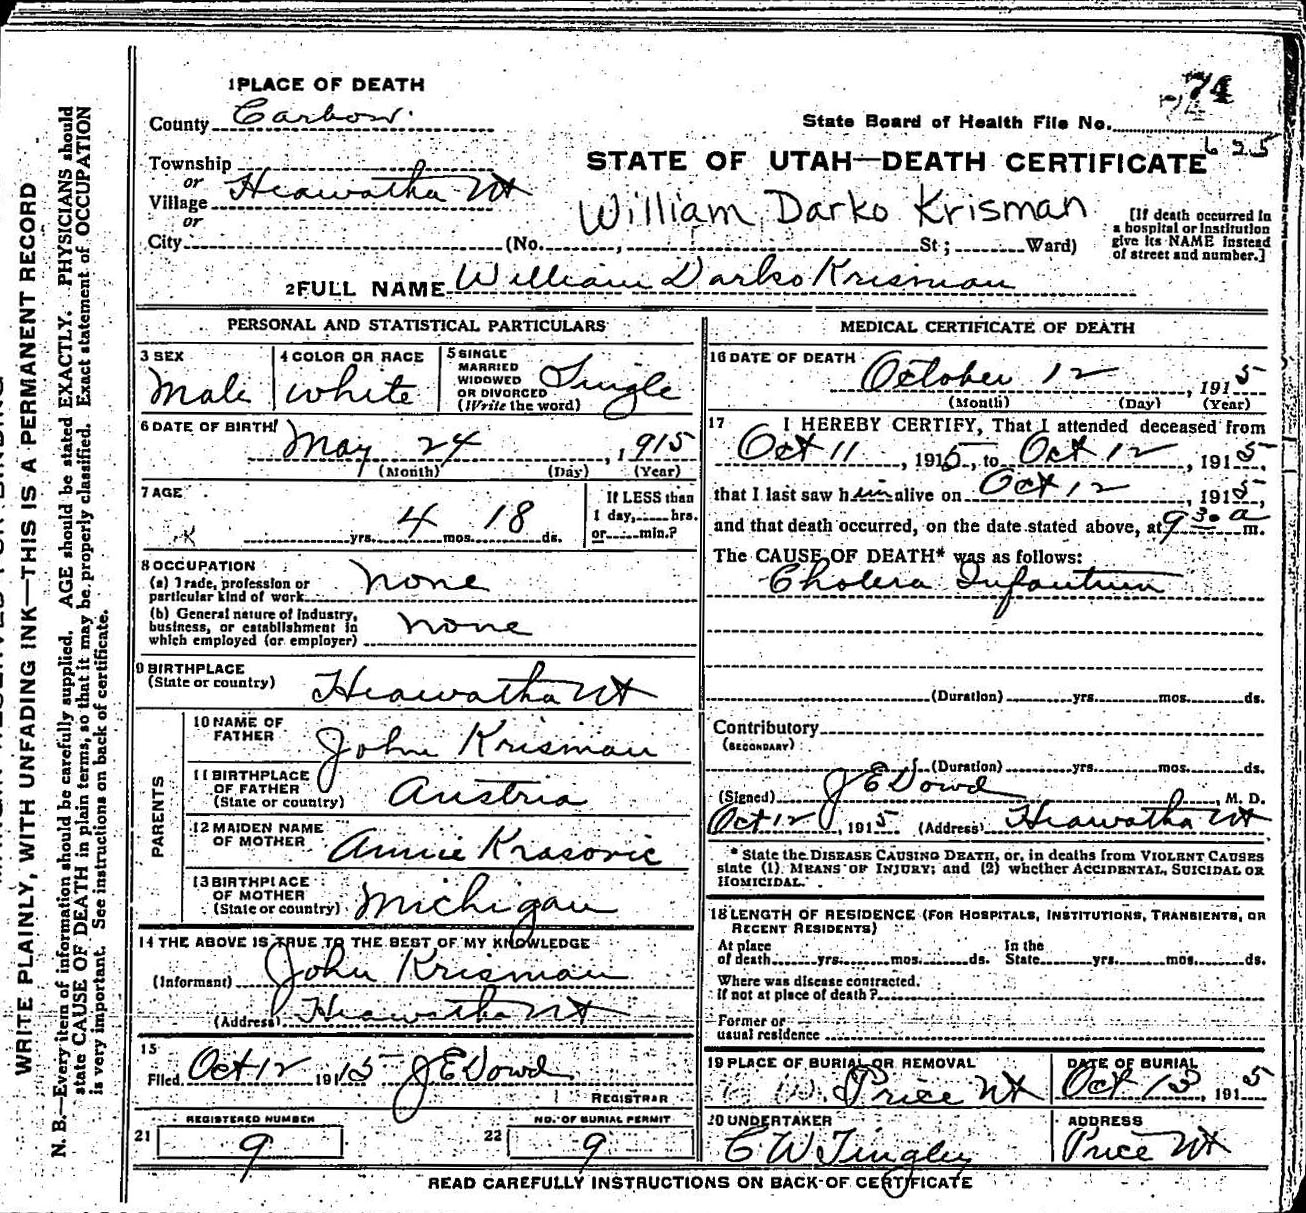 WRITE PLAINLY, WITH UNFADING INK—THIS IS A PERMANENT RECORD
N. B.—Every item of information should be carefully supplied. AGE should be stated EXACTLY. PHYSICIANS should
state CAUSE OF DEATH in plain terms, so that it may be properly classified. Exact statement of OCCUPATION
is very important. See instructions on back of certificate.
1 PLACE OF DEATH
County Carbon
Township
or
Village Hiawatha Ut
or
City (No. , St ; Ward)
74
State Board of Health File No.
625
STATE OF UTAH—DEATH CERTIFICATE
William Darko Krisman
[If death occurred in
a hospital or institution
give its NAME instead
of street and number.]
2 FULL NAME William Darko Krisman
PERSONAL AND STATISTICAL PARTICULARS
3 SEX
Male
4 COLOR OR RACE
White
5 SINGLE
MARRIED
WIDOWED
OR DIVORCED
(Write the word)
Single
6 DATE OF BIRTH
May 24, 1915
(Month) (Day) (Year)
7 AGE
yrs. 4 mos. 18 ds.
If LESS than
1 day, hrs.
or min.?
8 OCCUPATION
(a) Trade, profession or
particular kind of work none
(b) General nature of industry,
business, or establishment in
which employed (or employer) none
9 BIRTHPLACE
(State or country) Hiawatha Ut
PARENTS
10 NAME OF
FATHER John Krisman
11 BIRTHPLACE
OF FATHER
(State or country) Austria
12 MAIDEN NAME
OF MOTHER Annie Krasovic
13 BIRTHPLACE
OF MOTHER
(State or country) Michigan
14 THE ABOVE IS TRUE TO THE BEST OF MY KNOWLEDGE
(Informant) John Krisman
(Address) Hiawatha Ut
15
Filed Oct 12 1915 J E Dowd
REGISTRAR
REGISTERED NUMBER
21 9
NO. OF BURIAL PERMIT
22 9
MEDICAL CERTIFICATE OF DEATH
16 DATE OF DEATH
October 12, 1915
(Month) (Day) (Year)
17 I HEREBY CERTIFY, That I attended deceased from
Oct 11, 1915, to Oct 12, 1915,
that I last saw him alive on Oct 12, 1915,
and that death occurred, on the date stated above, at 9 30 a m.
The CAUSE OF DEATH* was as follows:
Cholera Infantum
(Duration) yrs. mos. ds.
Contributory
(SECONDARY)
(Duration) yrs. mos. ds.
(Signed) J E Dowd M. D.
Oct 12, 1915 (Address) Hiawatha Ut
* State the DISEASE CAUSING DEATH, or, in deaths from VIOLENT CAUSES
state (1) MEANS OF INJURY; and (2) whether ACCIDENTAL, SUICIDAL OR
HOMICIDAL.
18 LENGTH OF RESIDENCE (FOR HOSPITALS, INSTITUTIONS, TRANSIENTS, OR
RECENT RESIDENTS)
At place
of death yrs. mos. ds.
In the
State yrs. mos. ds.
Where was disease contracted,
if not at place of death?
Former or
usual residence
19 PLACE OF BURIAL OR REMOVAL
Price Ut
DATE OF BURIAL
Oct 13, 1915
20 UNDERTAKER
C W Tingley
ADDRESS
Price Ut
READ CAREFULLY INSTRUCTIONS ON BACK OF CERTIFICATE